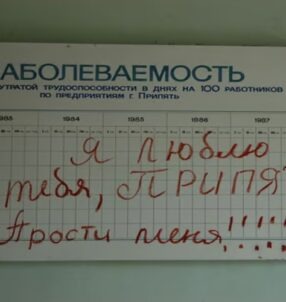 АБОЛЕВАЕМОСТЬ
УТРАТОЙ ТРУДОСПОСОБНОСТИ В ДНЯХ НА 100 РАБОТНИКОВ
ПО ПРЕДПРИЯТИЯМ г. ПРИПЯТЬ
1984 1985 1986 1987
Я люблю
тебя, ПРИПЯ
Прости меня!!!!!